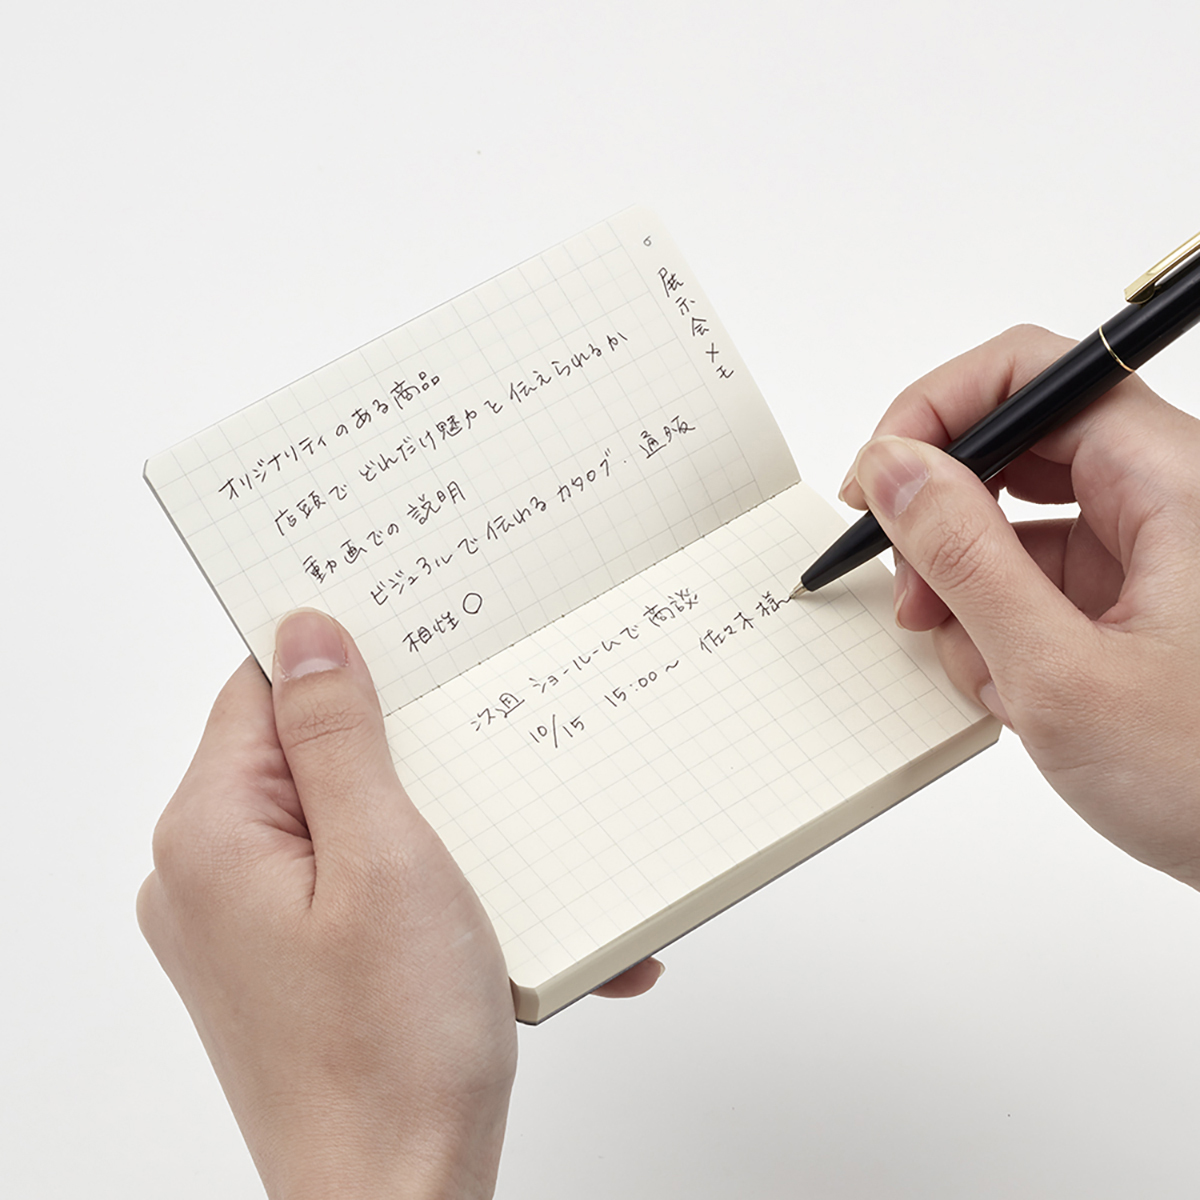 展示会メモ
オリジナリティのある商品
店頭でどれだけ魅力を伝えられるか
動画での説明
ビジュアルで伝わるカタログ・通販
相性○
次週 ショールームで商談
10/15 15:00〜 佐々木様